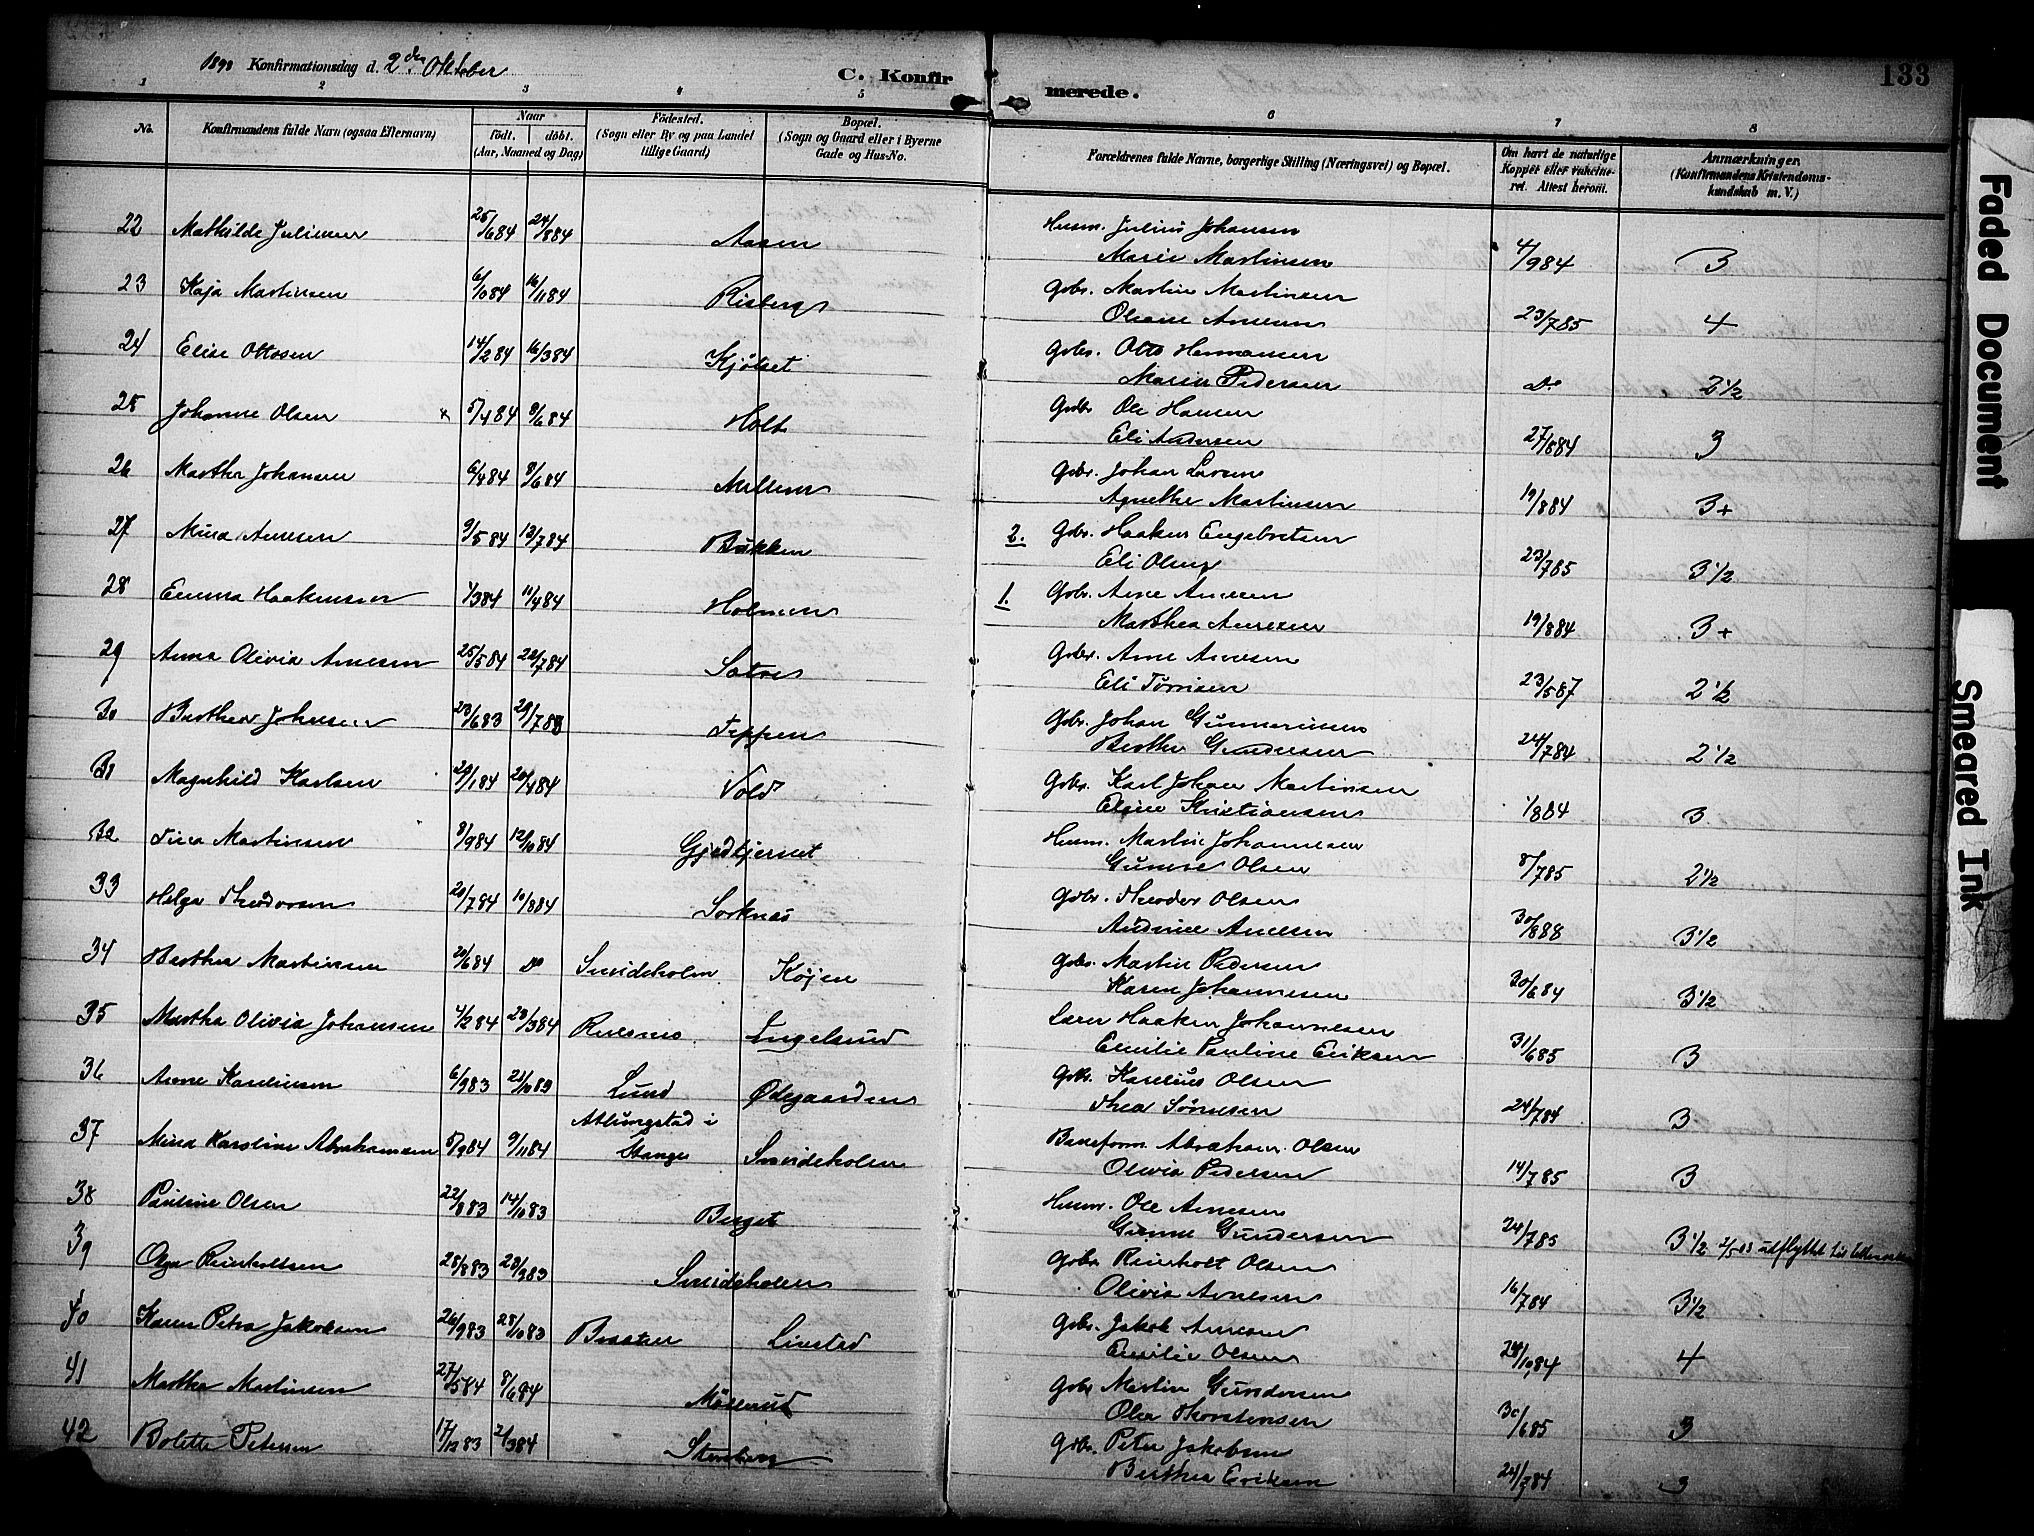 133
1898 Konfirmationsdag d. 2den Oktober
C. Konfirmerede.
1 2 3 4 5 6 7 8
No.
Konfirmandens fulde Navn (ogsaa Efternavn)
Naar
født. døbt.
(Aar, Maaned og Dag)
Fødested.
(Sogn eller By og paa Landet
tillige Gaard)
Bopæl.
(Sogn og Gaard eller i Byerne
Gade og Hus-No.
Forældrenes fulde Navne, borgerlige Stilling (Næringsvei) og Bopæl.
Om havt de naturlige
Kopper eller vakcine-
ret. Attest herom.
Anmærkninger
(Konfirmandens Kristendoms-
kundskab m. V.)
22 Mathilde Juliussen 25/6 84 24/8 84 Aasen Husm. Julius Johansen
Marie Martinsen 4/9 84 3
23 Kaja Martinsen 6/10 84 16/11 84 Risberg Gbr. Martin Martinsen
Oleane Arnesen 23/7 85 4
24 Elise Ottosen 14/2 84 16/3 84 Kjølset Gbr. Otto Hermansen
Maren Pedersen Do 2 1/2
25 Johanne Olsen x 5/4 84 8/6 84 Holt Gbr. Ole Hansen
Eli Andersen 27/8 84 3
26 Marthe Johansen 6/4 84 8/6 84 Mellem Gbr. Johan Larsen
Agnethe Martinsen 19/8 84 3+
27 Mina Arnesen 9/5 84 13/7 84 Bakken 2. Gbr. Haaken Engebretsen
Eli Olsen 23/7 85 3 1/2
28 Emma Haakensen 1/3 84 11/4 84 Holmen 1. Gbr. Arne Arnesen
Marthea Arnesen 19/8 84 3+
29 Anna Olivia Arnesen 25/5 84 22/7 84 Sætre Gbr. Arne Arnesen
Eli Tørrisen 23/5 87 2 1/2
30 Berthea Johansen 23/6 83 29/7 83 Teppen Gbr. Johan Gunneriusen
Berthe Gundersen 24/7 84 2 1/2
31 Magnhild Karlsen 29/1 84 20/4 84 Vold Gbr. Karl Johan Martinsen
Eline Kristiansen 1/8 84 3
32 Tina Martinsen 8/9 84 12/10 84 Gjedtjernet Husm. Martin Johannesen
Gunine Olsen 8/7 85 2 1/2
33 Helga Theodorsen 20/7 84 10/8 84 Sorknæs Gbr. Theodor Olsen
Andrine Arnesen 30/8 88 3 1/2
34 Berthea Martinsen 20/6 84 Do Smideholen Køjen Gbr. Martin Pedersen
Karen Johannesen 30/6 84 3 1/2
35 Martha Olivia Johansen 4/2 84 23/3 84 Revsnes Engelsrud Lærer Haaken Johannesen
Emilie Pauline Eriksen 31/6 85 3
36 Anne Karelinsen 6/9 83 21/10 83 Lund Ødegaarden Gbr. Karelius Olsen
Thea Sørnesen 24/7 84 3
37 Mina Karoline Abrahamsen 5/9 84 9/11 84 Atlungstad i
Stange Smideholen Baneform. Abraham Olsen
Olivia Pedersen 14/7 85 3
38 Pauline Olsen 22/8 83 14/10 83 Berget Husm. Ole Arnesen
Gunne Gundersen 24/7 85 3 1/2 2/5 03 utflyttet til
39 Olga Reinholtsen 25/8 83 23/9 83 Smideholen Gbr. Reinholt Olsen
Olivia Arnesen 16/7 84 3 1/2
40 Karen Petra Jakobsen 26/9 83 28/10 83 Braaten Linstad Gbr. Jakob Arnesen
Emilie Olsen 28/10 84 4
41 Martha Martinsen 27/5 84 8/6 84 Møllerud Gbr. Martin Gundersen
Olea Thorstensen 30/6 85 3
42 Bolette Petersen 17/12 83 2/3 84 Stensberg Gbr. Peter Jakobsen
Berthea Eriksen 24/7 84 3
Faded Document
Smeared Ink